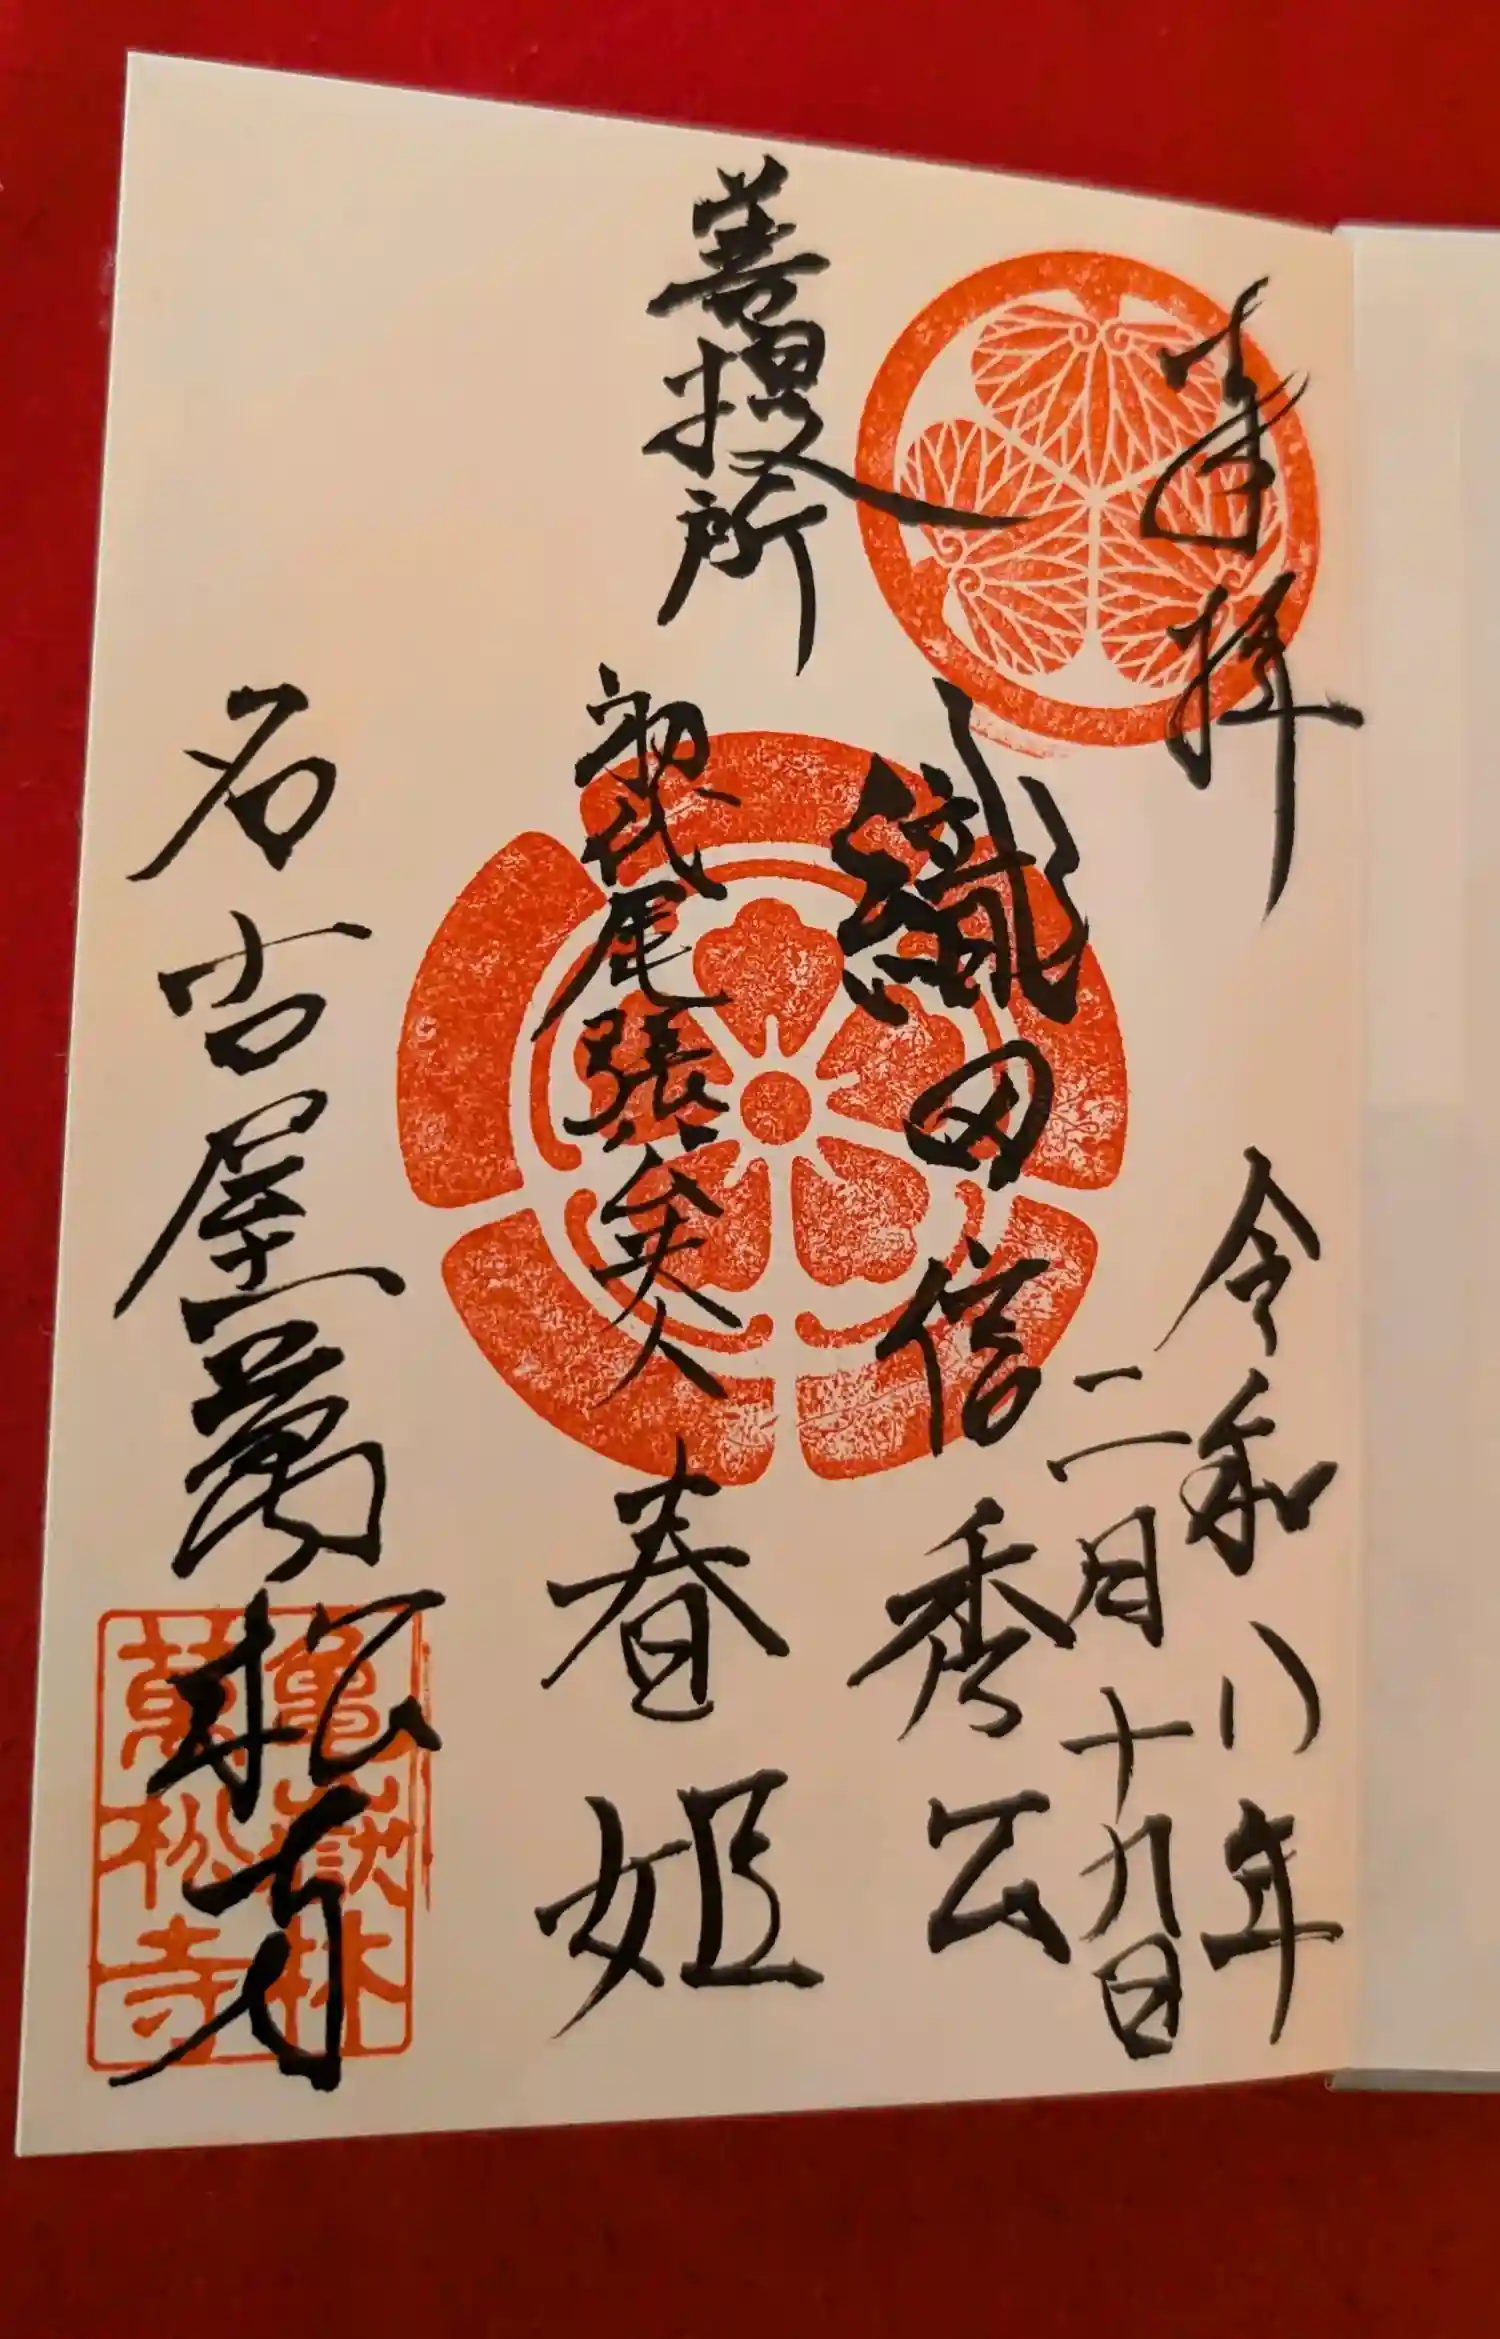 奉拝
令和八年
二月十九日
織田信秀公
菩提所
初代尾張藩夫人
春姫
名古屋萬松寺
亀嶽林
萬松寺